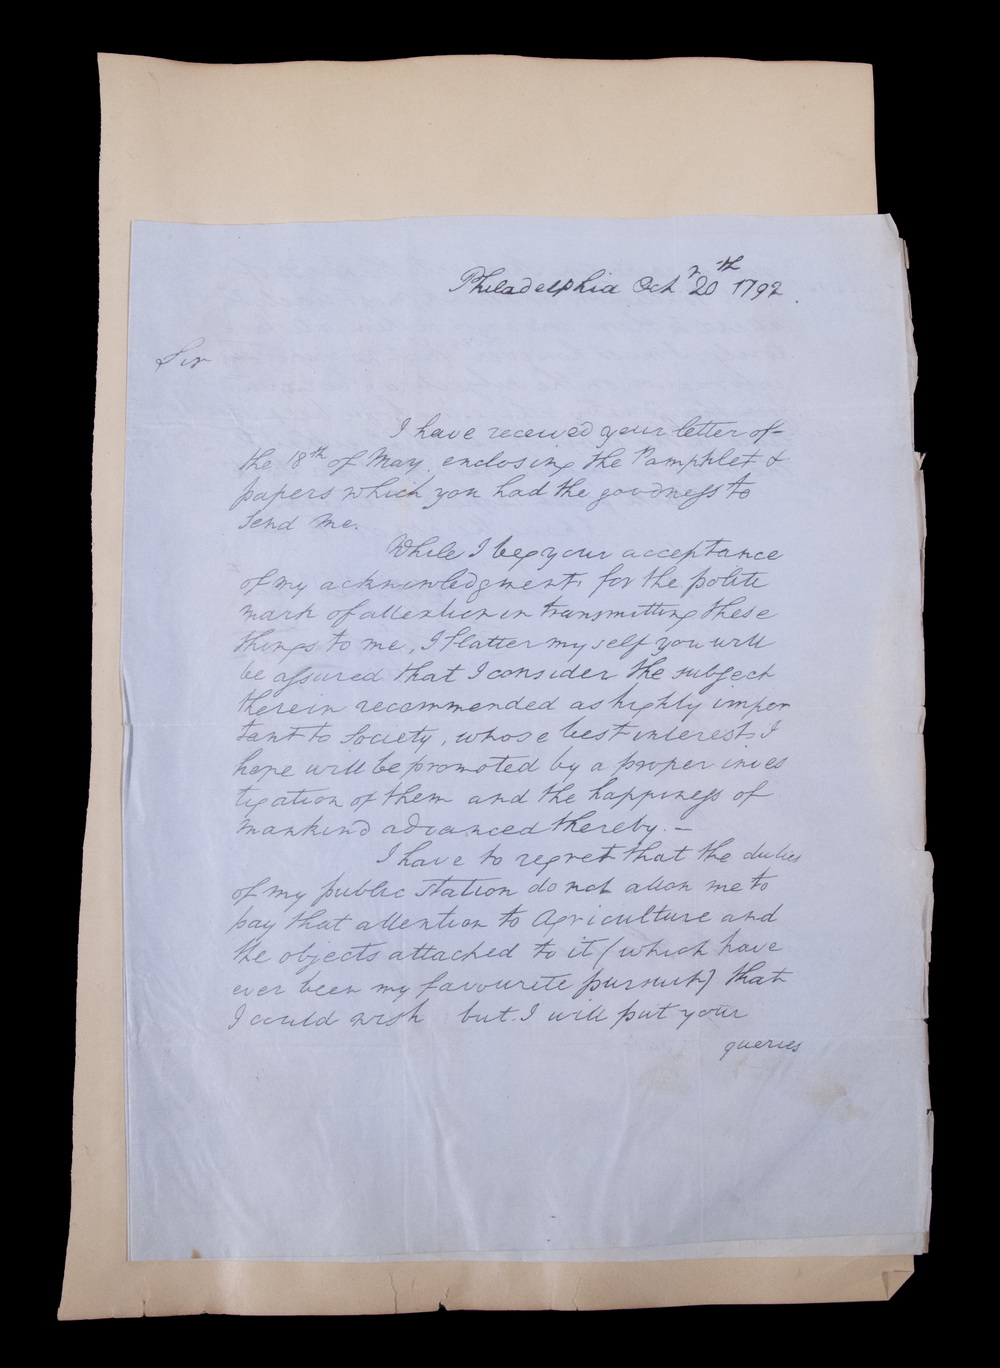 Philadelphia Octr 20th 1792
Sir
I have received your letter of
the 18th of May enclosing the Pamphlet &
papers which you had the goodness to
send me.
While I beg your acceptance
of my acknowledgments for the polite
mark of attention in transmitting these
things to me, I flatter myself you will
be assured that I consider the subject
therein recommended as highly impor
tant to Society, whose best interests I
hope will be promoted by a proper inves
tigation of them and the happiness of
mankind advanced thereby. —
I have to regret that the duties
of my public station do not allow me to
pay that attention to Agriculture and
the objects attached to it (which have
ever been my favourite pursuit) that
I could wish but I will put your
queries